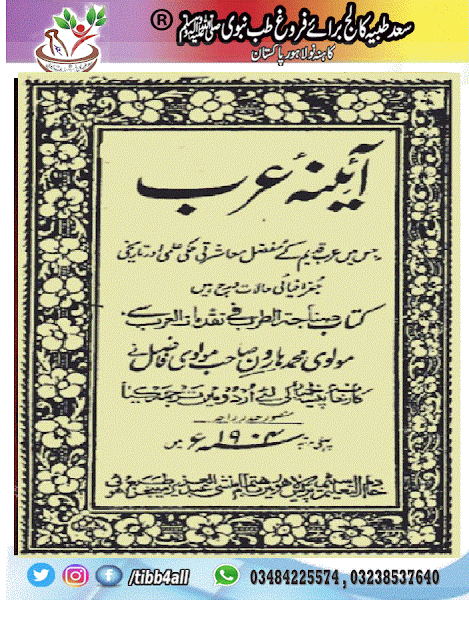 سعد طبیہ کالج برائے فروغ طب نبوی ﷺ ®
کاہنہ نو لاہور پاکستان
آئینۂ عرب
جس میں عرب قدیم کے مفصل معاشرتی ملکی علمی اور تاریخی
جغرافیائی حالات درج ہیں
کتاب صناجة الطرب فی تقدمات العرب سے
مولوی محمد ہارون صاحب مولوی فاضل نے
کارخانہ پیسہ اخبار کے لئے اردو میں ترجمہ کیا
منصور حیدر راجہ
۱۹۰۴ء میں
/tibb4all
03484225574 , 03238537640